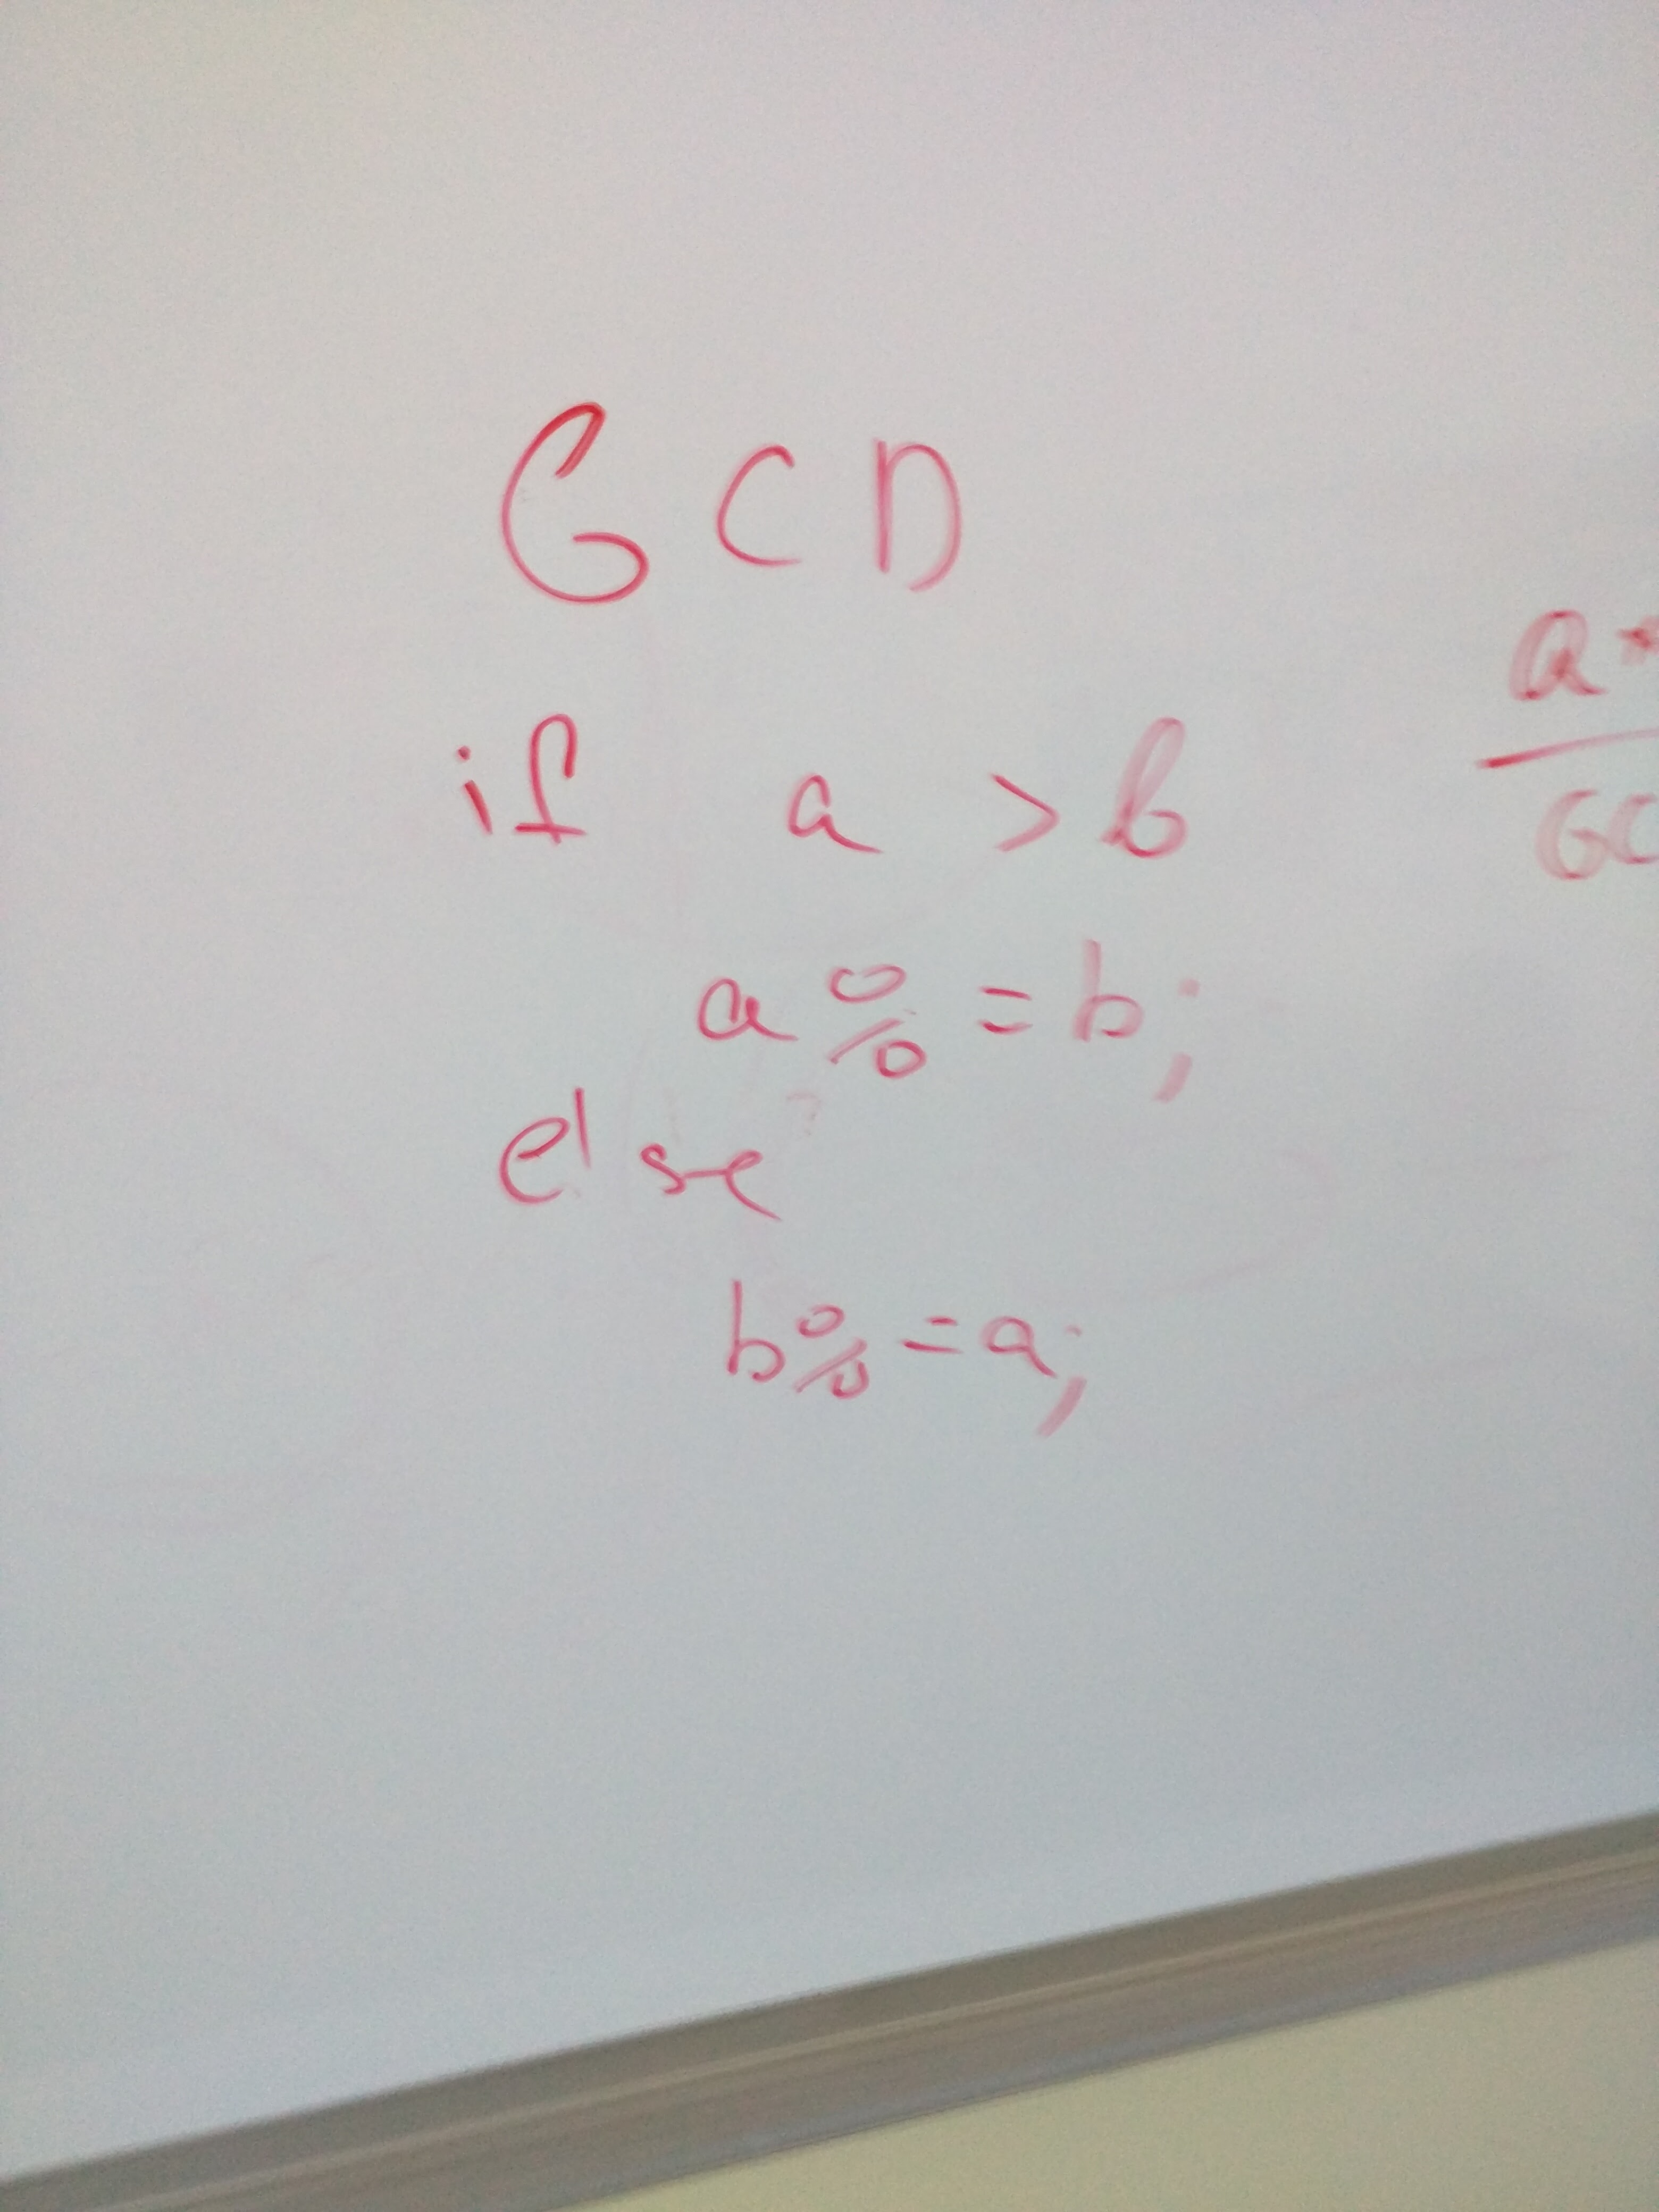 GCD
if a > b
a %= b;
else
b %= a;
a*
GC